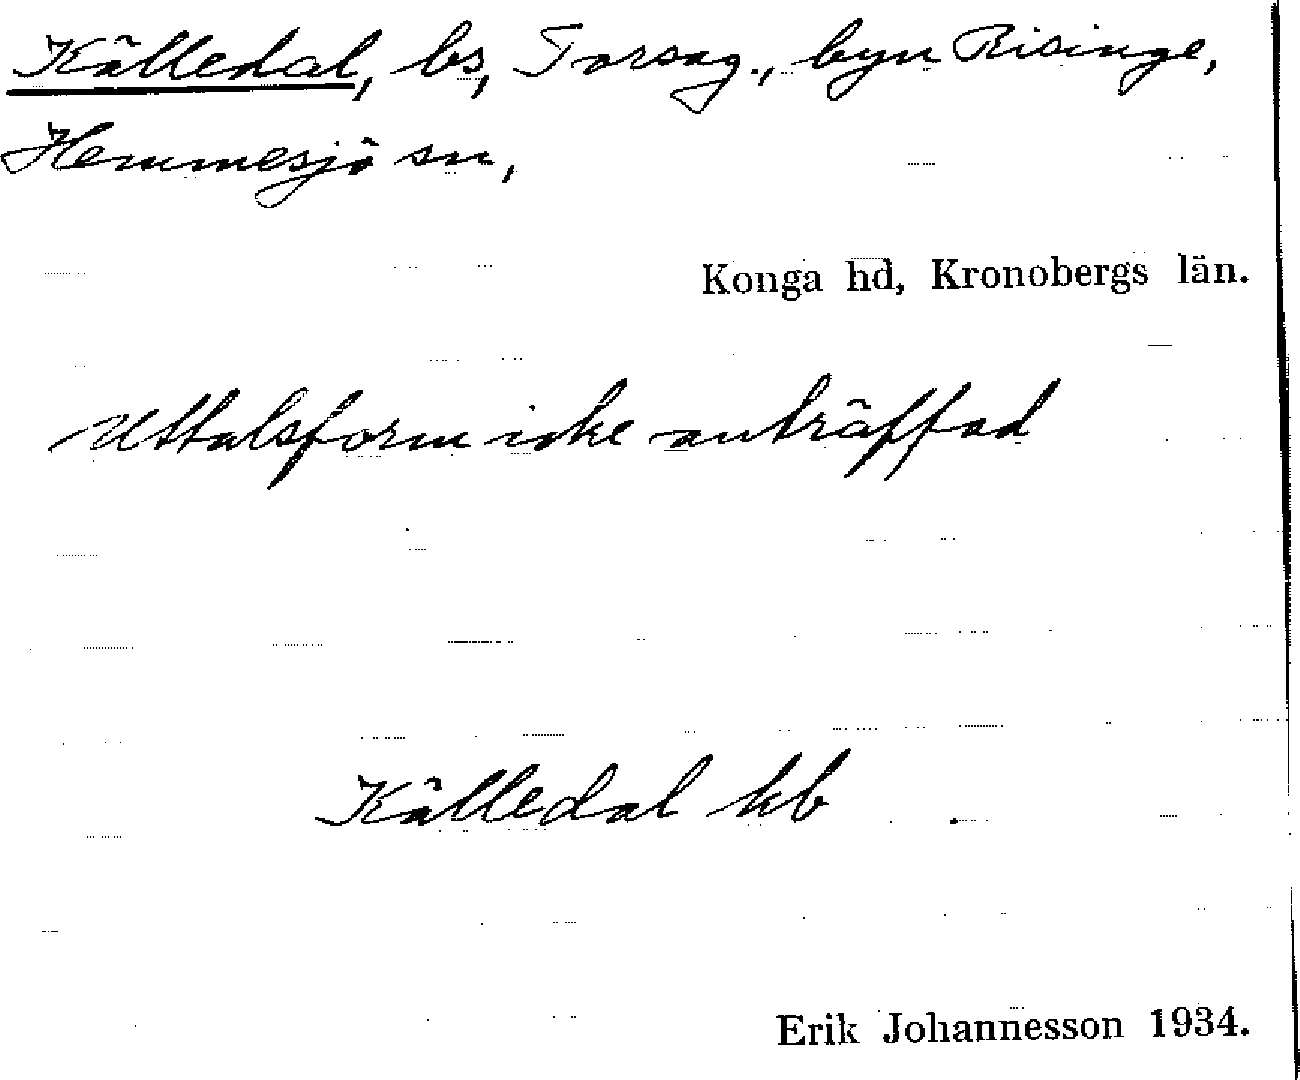 Källedal, bs, Torsag., byn Risinge,
Hemmesjö sn,
Konga hd, Kronobergs län.
Uttalsform icke anträffad
Källedal kb
Erik Johannesson 1934.